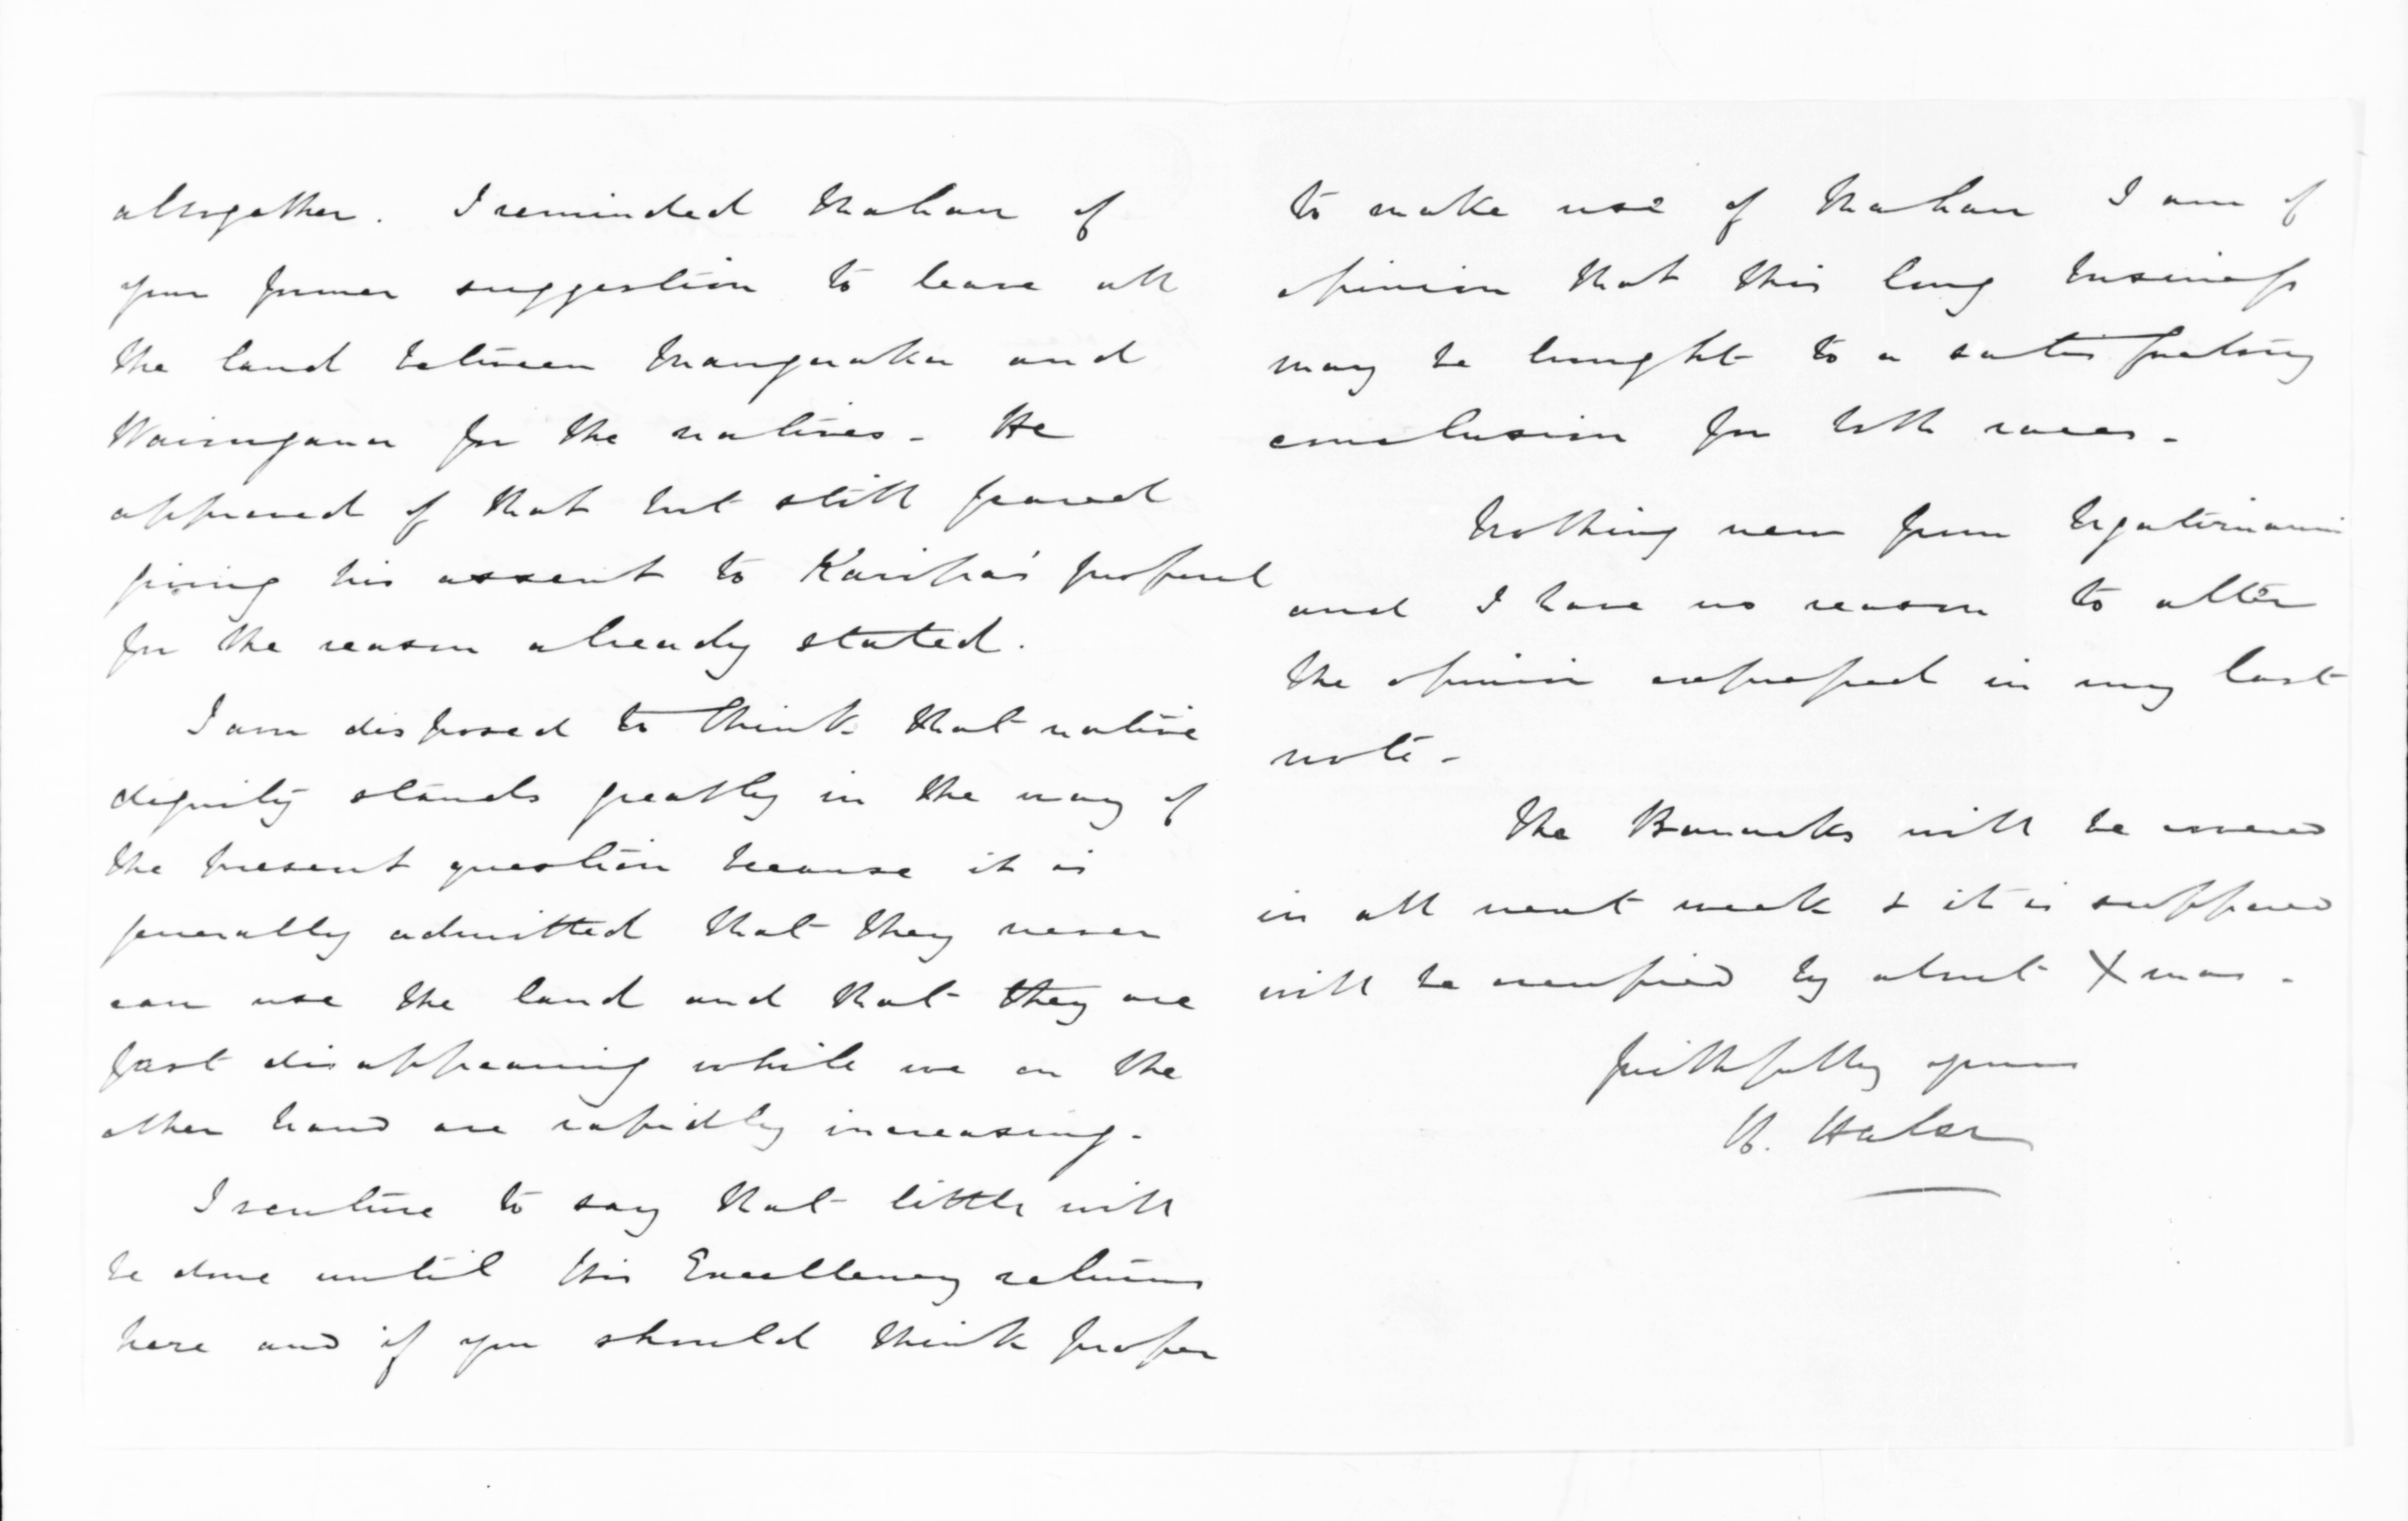 altogether. I reminded Mahau of
your former suggestion to leave all
the land between Mangoraka and
Waiongana for the natives - He
approved of that but still feared
giving his assent to Karipa's proposal
for the reason already stated.
I am disposed to think that native
dignity stands greatly in the way of
the present question because it is
generally admitted that they never
can use the land and that they are
fast disappearing while we on the
other hand are rapidly increasing -
I venture to say that little will
be done until His Excellency returns
here and if you should think proper
to make use of Mahau I am of
opinion that this long business
may be brought to a satisfactory
conclusion for both races -
Nothing new from Ngatiruanui
and I have no reason to alter
the opinion expressed in my last
note -
The Barracks will be covered
in all next week & it is supposed
will be occupied by about Xmas -
faithfully yours
H. Halse